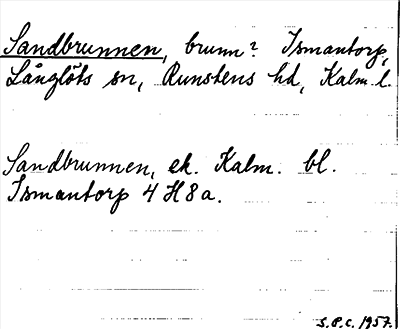 Sandbrunnen, brunn? Ismantorp,
Långlöts sn, Runstens hd, Kalm l.
Sandbrunnen, ek. Kalm. bl.
Ismantorp 4 H 8 a.
S.P.C. 1957.